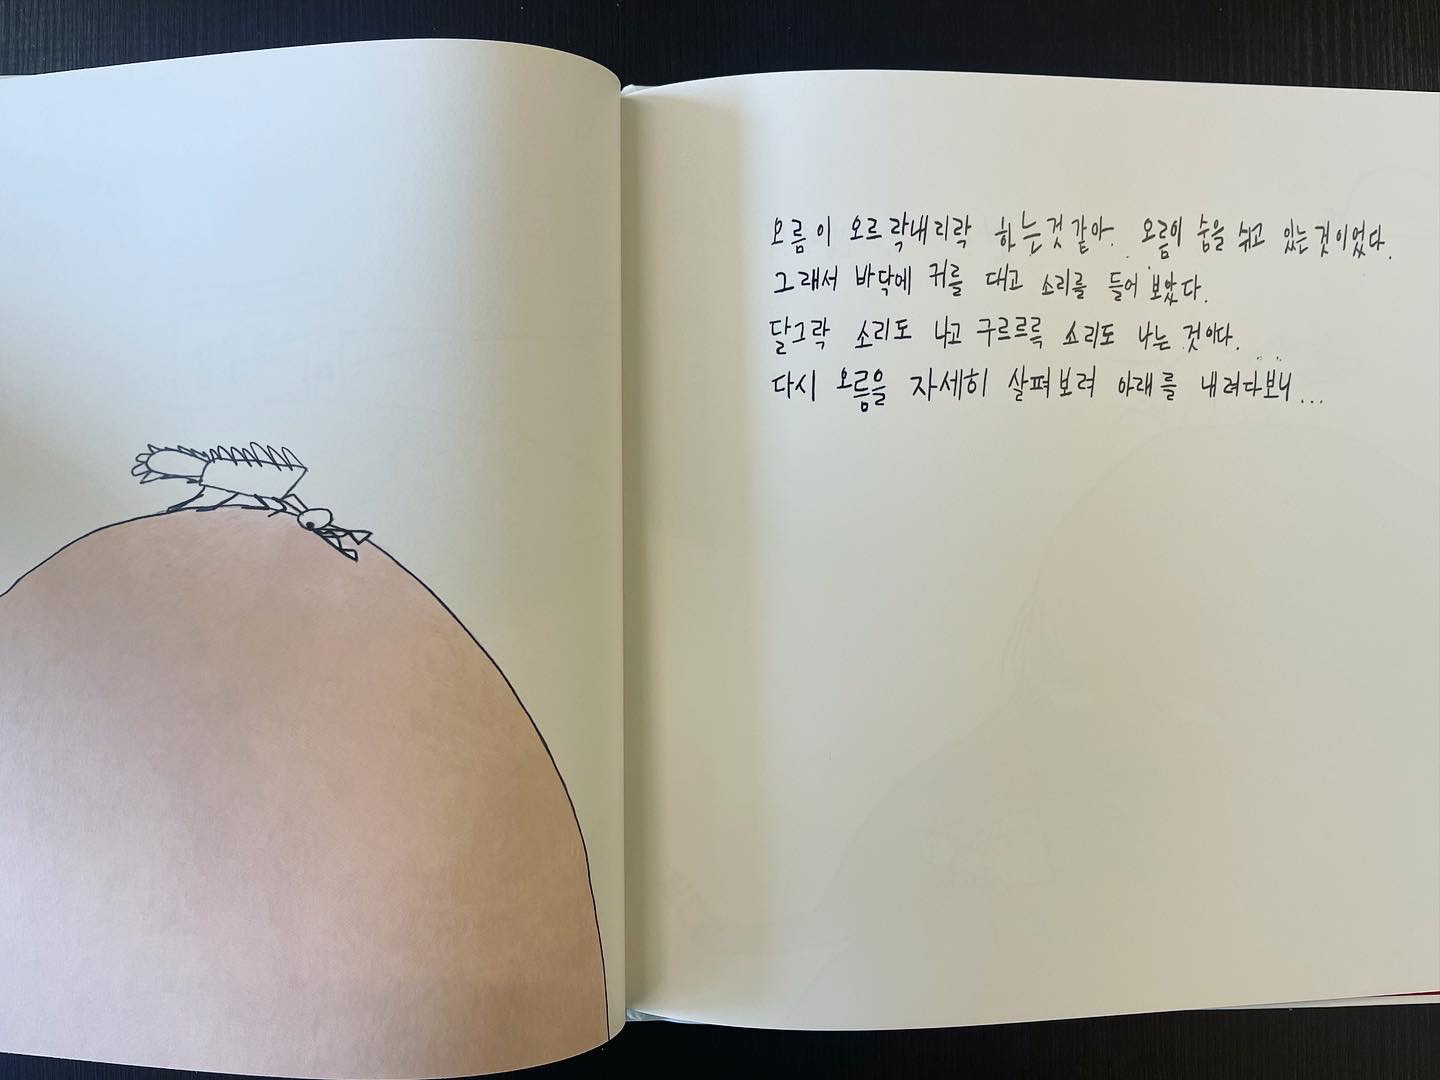 오름이 오르락내리락 하는것같아. 오름이 숨을 쉬고 있는것이었다.
그래서 바닥에 귀를 대고 소리를 들어보았다.
달그락 소리도 나고 구르르륵 소리도 나는 것이다.
다시 오름을 자세히 살펴보려 아래를 내려다보니...